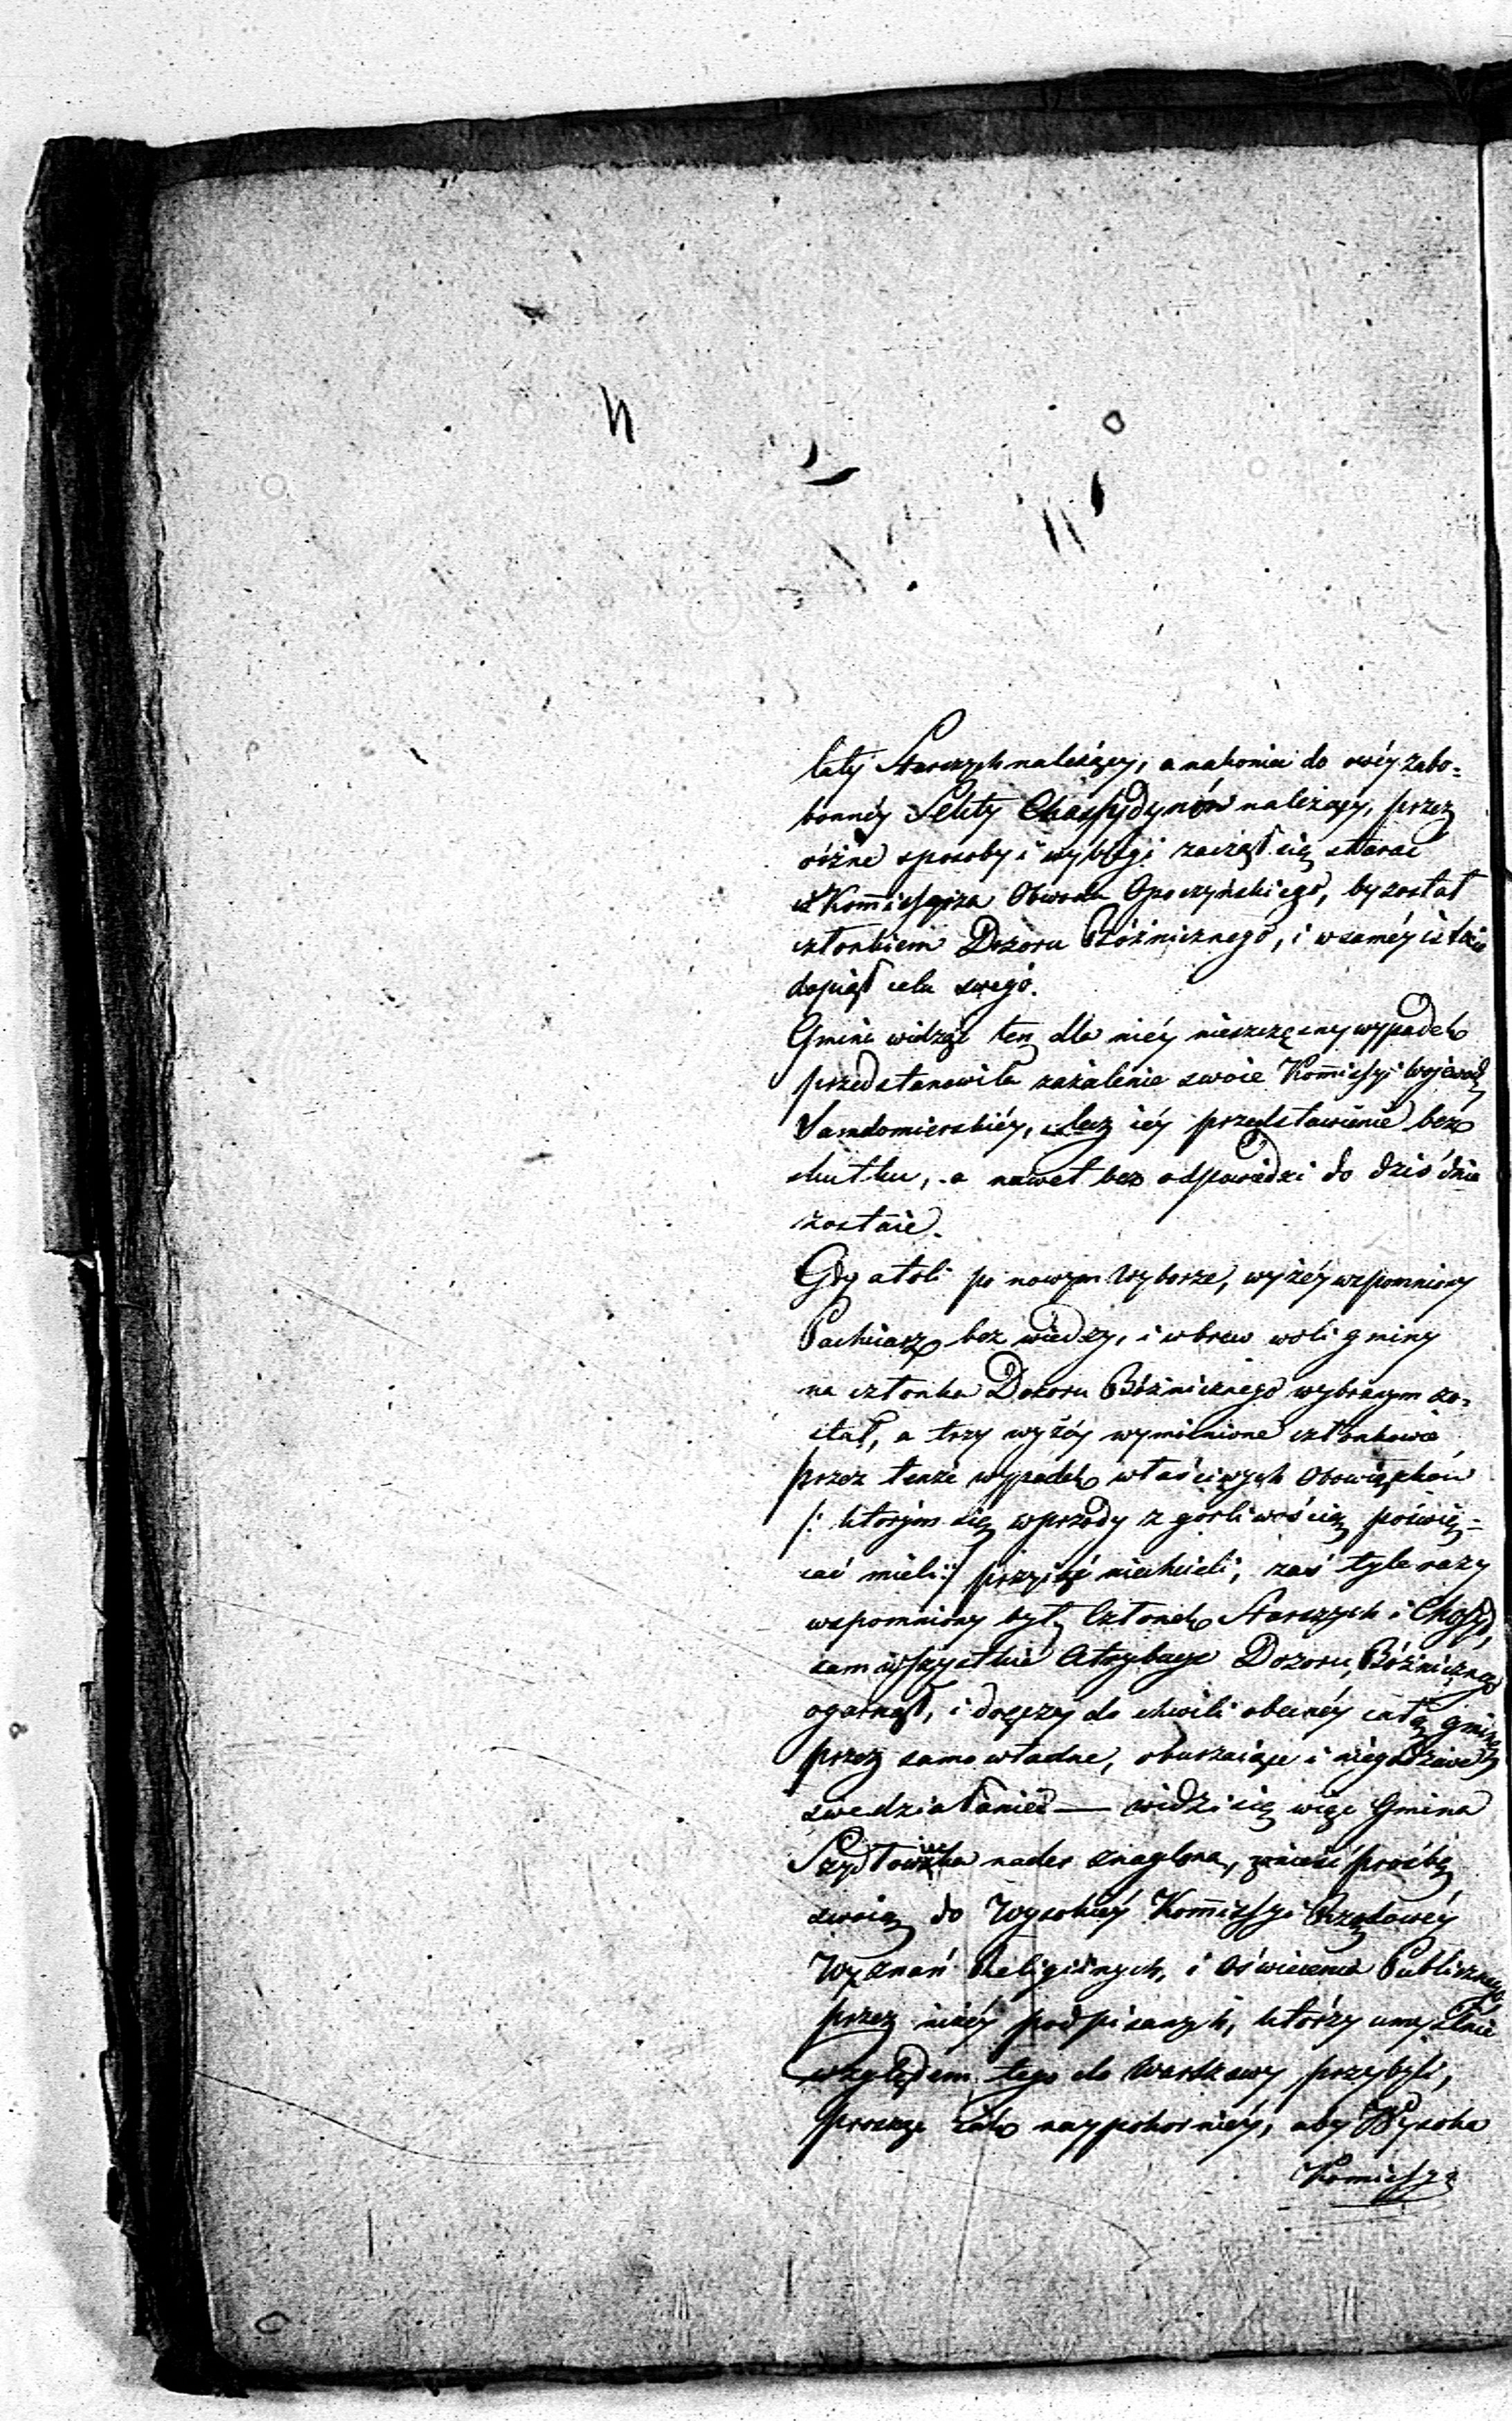 laty Starszych należący, a nakoniec do owéy zabo=
bonnéy Sekty Chassydynów należący, przez
różne sposoby i wybiegi zaczął się starać
u Kommissarza Obwodu Opoczyńskiego, by został
członkiem Dozoru Bóżnicznego, i w saméy istocie
dopiął celu swego.
Gmina widząc ten dla niéy nieszczęsny wypadek
przedstawiła zażalenie swoie Kommissyi Wojewódz
Sandomierskiéy, lecz iéy przedstawienie bez
skutku, a nawet bez odpowiedzi do dziś dnia
zostaie.
Gdy atoli po nowym wyborze, wyżéy wspomniony
Pachciarz bez wiedzy, i wbrew woli gminy
na członka Dozoru Bóżnicznego wybranym zo=
stał, a trzy wyżéy wymienione członkowie
przez tenże wypadek właściwych Obowiązków
/: którym się wprzódy z gorliwością poświę=
cać mieli :/ przyiąć niechcieli, zaś tyle razy
wspomniony był Członek Starszych i Chassyd,
sam wszystkie Atrybucye Dozoru Bóżnicznego
ogarnął, i dręczy do chwili obecnéy całą gminę
przez samowładne, oburzaiące i niegodziwe
swe działanie — widzi się więc Gmina
Szydłowiecka nader znaglona, wnieść prośbę
swoią do Wysokiéy Kommissyi Rządowéy
Wyznań Religiinych, i Oświecenia Publicznego
przez niżéy podpisanych, którzy umyślnie
względem tego do Warszawy przybyli,
prosząc iak naypokorniéy, aby Wysoka
Komissya